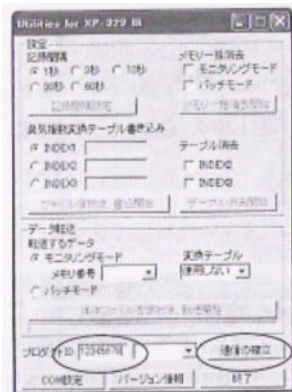 Utilities for XP-329 III
設定
記録間隔
1秒 3秒 10秒
30秒 60秒
記録間隔設定
メモリー抹消去
モニタリングモード
バッチモード
メモリー抹消去開始
臭気指数変換テーブル書き込み
INDEX1
INDEX2
INDEX3
テーブル消去
INDEX2
INDEX3
テーブル消去開始
データ転送
転送するデータ
モニタリングモード
メモリ番号
バッチモード
変換テーブル
使用しない
プロダクトID 12345678
通信の確立
COM設定 バージョン情報 終了